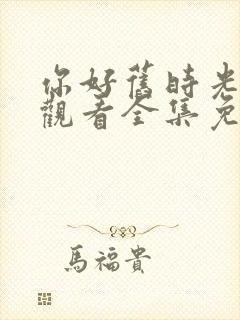 你好舊時光
觀看全集免
馬福貴